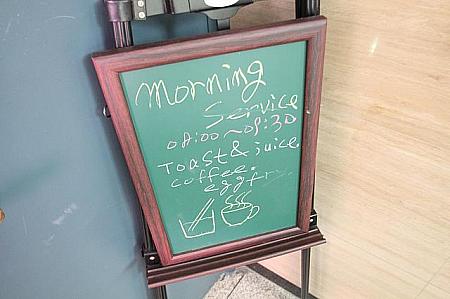 morning
Service
08:00~09:30
Toast & juice
coffee.
egg fry.